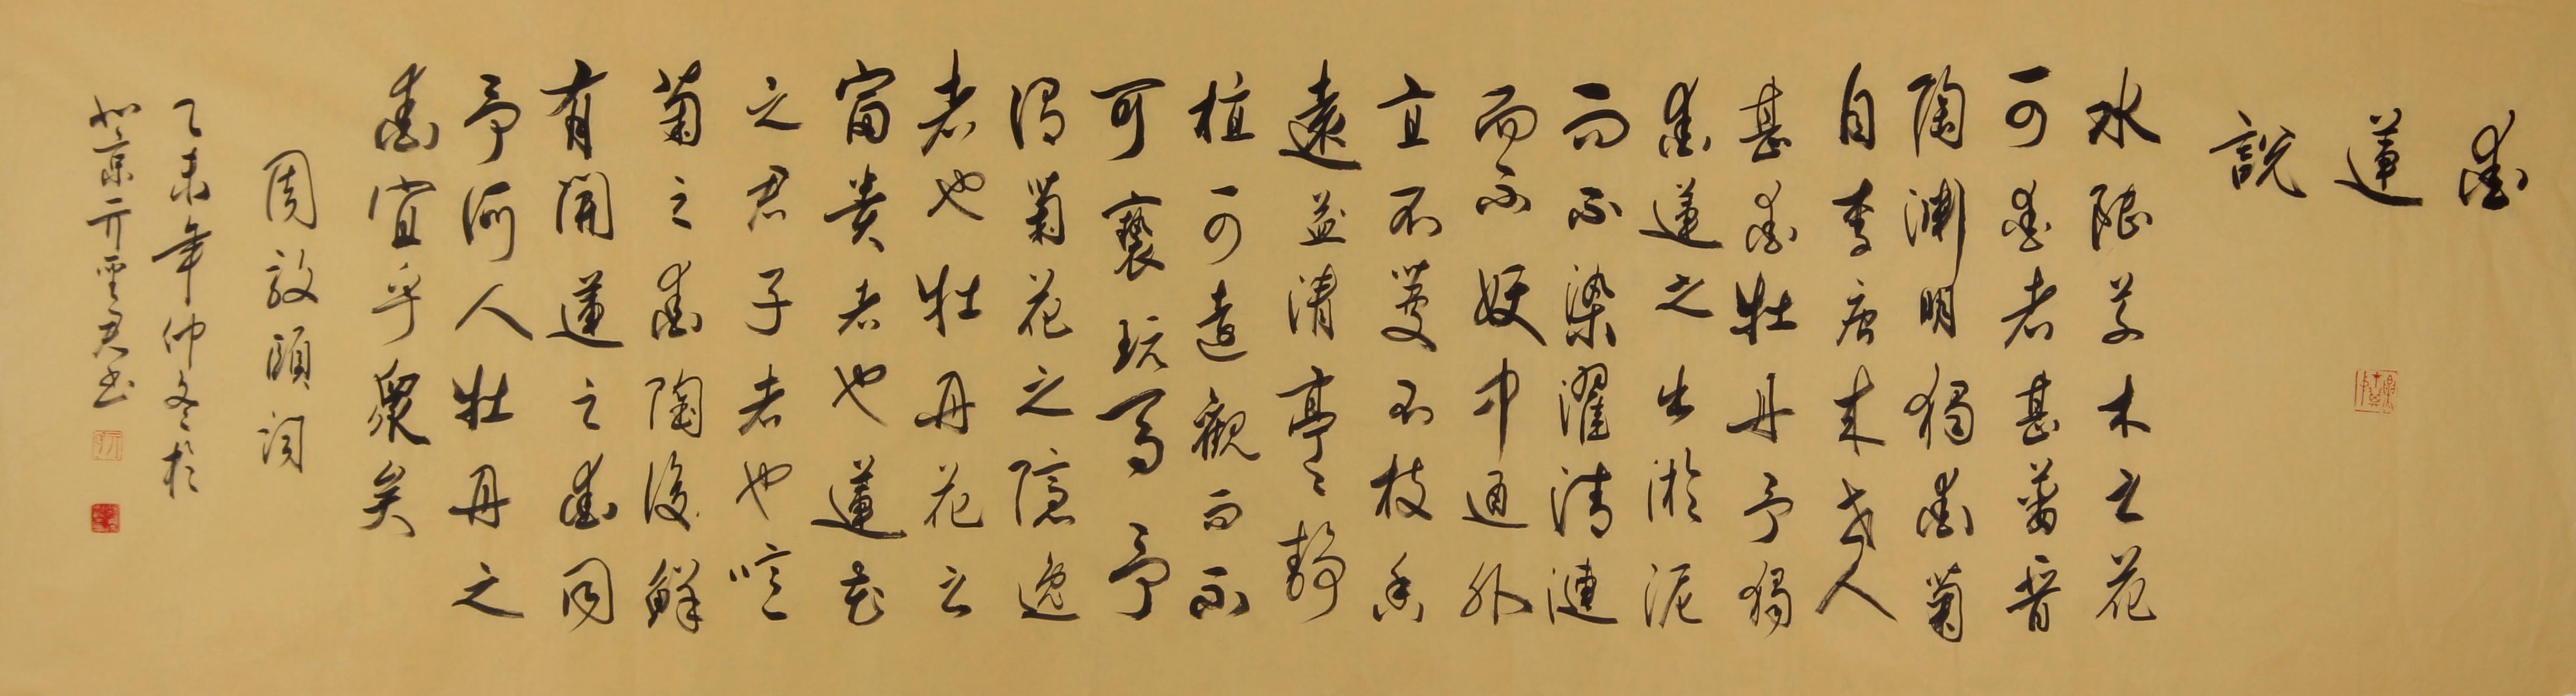 愛蓮說
水陸草木之花
可愛者甚蕃晉
陶淵明獨愛菊
自李唐來世人
甚愛牡丹予獨
愛蓮之出淤泥
而不染濯清漣
而不妖中通外
直不蔓不枝香
遠益清亭〻靜
植可遠觀而不
可褻玩焉予
謂菊花之隱逸
者也牡丹花之
富貴者也蓮花
之君子者也噫
菊之愛陶後鮮
有聞蓮之愛同
予何人牡丹之
愛宜乎眾矣
周敦頤詞
乙未年仲冬於
北京亓聖君书